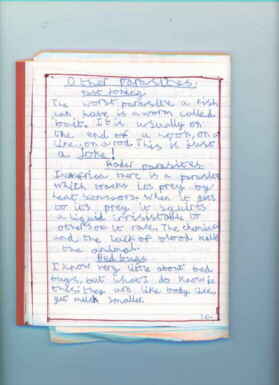 Other Parasites.
Just joking
The worst parasite a fish
can have is a worm called
bait. It is usually on
the end of a hook, on a
line, on a rod. This is just
a joke!
parasites
In America there is a parasite
which tracks its prey by
heat sensors. When it gets
to its prey it squirts
a liquid irrisistable to
others of it race. The chemical
and the lack of blood kills
the animal.
Bed bugs
I know very little about bed
bugs, but what I do know is
this: they are like body lice,
just much smaller.